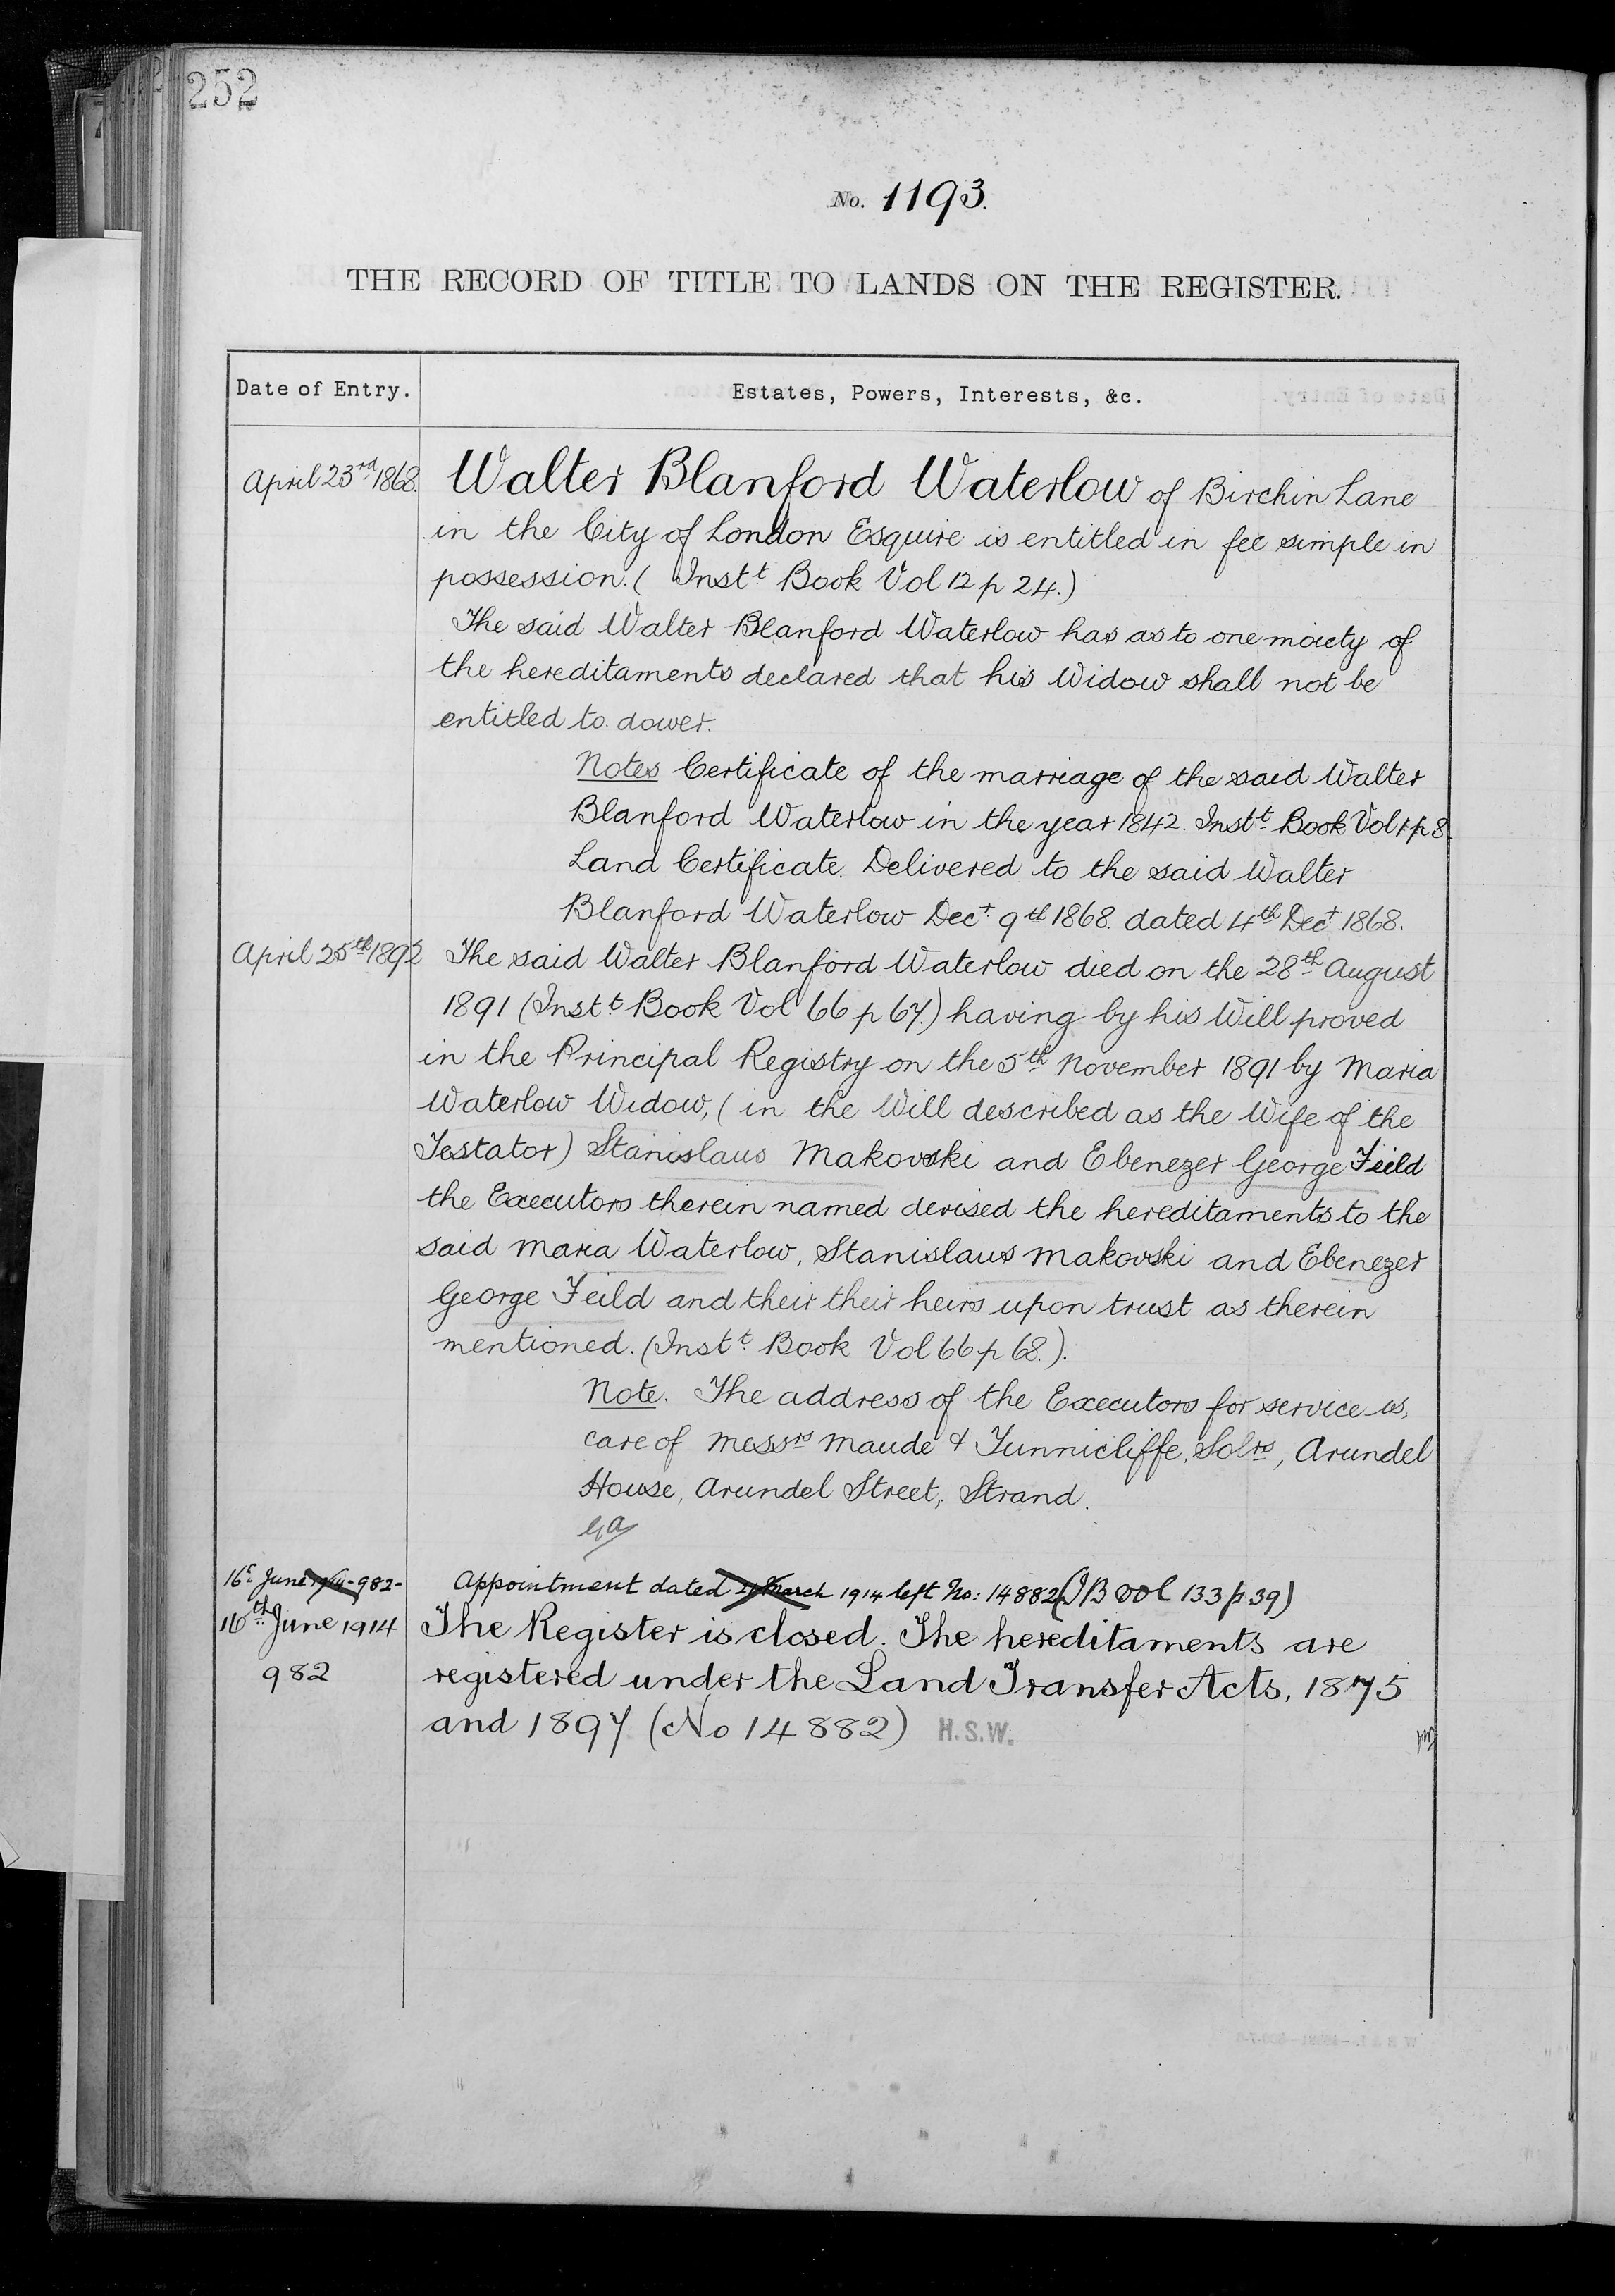 252
No. 1193.
THE RECORD OF TITLE TO LANDS ON THE REGISTER.
Date of Entry.
Estates, Powers, Interests, &c.
April 23rd 1868.
Walter Blanford Waterlow of Birchin Lane
in the City of London Esquire is entitled in fee simple in
possession. ( Instt Book Vol 12 p 24.)
The said Walter Blanford Waterlow has as to one moiety of
the hereditaments declared that his Widow shall not be
entitled to dower.
Notes Certificate of the marriage of the said Walter
Blanford Waterlow in the year 1842. Instt Book Vol p 8.
Land Certificate. Delivered to the said Walter
Blanford Waterlow Decr 9th 1868. dated 4th Decr 1868.
April 25th 1892
The said Walter Blanford Waterlow died on the 28th August
1891 (Instt Book Vol 66 p 67.) having by his Will proved
in the Principal Registry on the 5th November 1891 by Maria
Waterlow Widow, (in the Will described as the Wife of the
Testator) Stanislaus Makovski and Ebenezer George Feild
the Executors therein named devised the hereditaments to the
said Maria Waterlow, Stanislaus Makovski and Ebenezer
George Feild and their their heirs upon trust as therein
mentioned. (Instt Book Vol 66 p 68.).
Note. The address of the Executors for service is,
care of Messrs Maude & Tunnicliffe, Solrs, Arundel
House, Arundel Street, Strand.
16th June 982-
Appointment dated March 1914 left No: 14882 (IB vol 133 p 39)
16th June 1914
982
The Register is closed. The hereditaments are
registered under the Land Transfer Acts, 1875
and 1897 (No 14882) H.S.W.